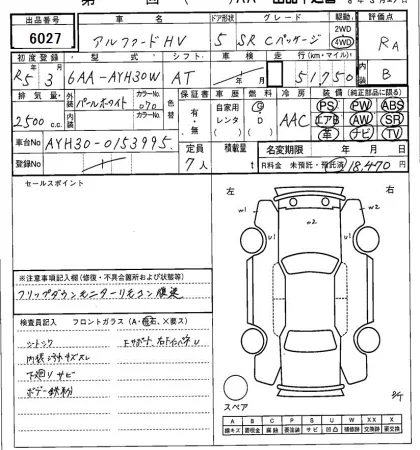 出品番号 車名 ドア形状 グレード 駆動 評価点
6027 アルファードHV 5 SR Cパッケージ 2WD 4WD RA
初度登録 型式 シフト 車検 走行(km・マイル) 内装
R5年3月 6AA-AYH30W AT 年 月 51,750 B
排気量 外装 カラーNo. 色替 保証書 車歴 燃料 冷房 装備(純正部品に限る)
2500 c.c. パールホワイト 070 有・無 自家用 レンタ G D AAC PS PW ABS
内装 カラーNo. エアB AW SR
革 ナビ TV
車台No. AYH30-0153995. 定員 積載量 名変期限 年 月 日
登録No. 7人 t R料金 未預託・預託済 18,470円
セールスポイント 左 右
w1 w2 w1
u1 w2 u1
※注意事項記入欄(修復・不具合箇所および状態等)
フリップダウンモニターリモコン
検査員記入 フロントガラス(A・飛石、×要ス)
下廻りサビ
ボデー鉄粉
スペア
A B C P S U W XX X
線キズ 要板金 腐食 要塗装 サビ 凹凸 補修跡 交換跡 要交換